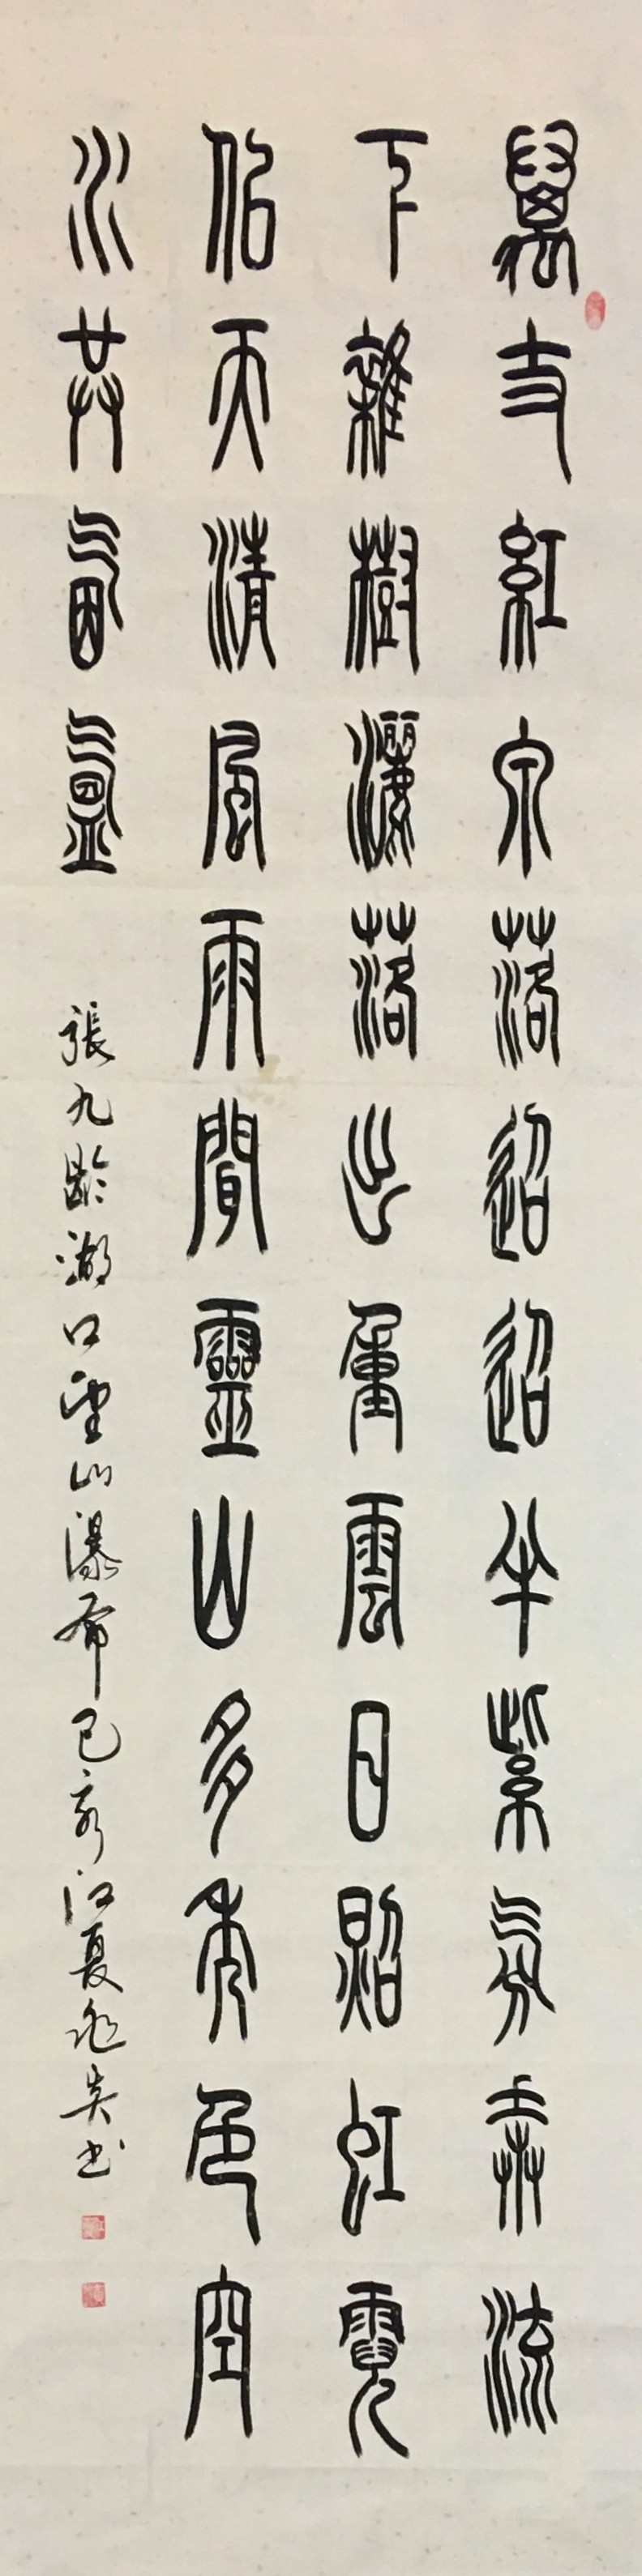 萬丈紅泉落迢迢半紫氛奔流
下雜樹灑落出重雲日照虹霓
佀天清風雨聞靈山多秀色空
水共氤氳
張九齡湖口望山瀑布己亥江夏書